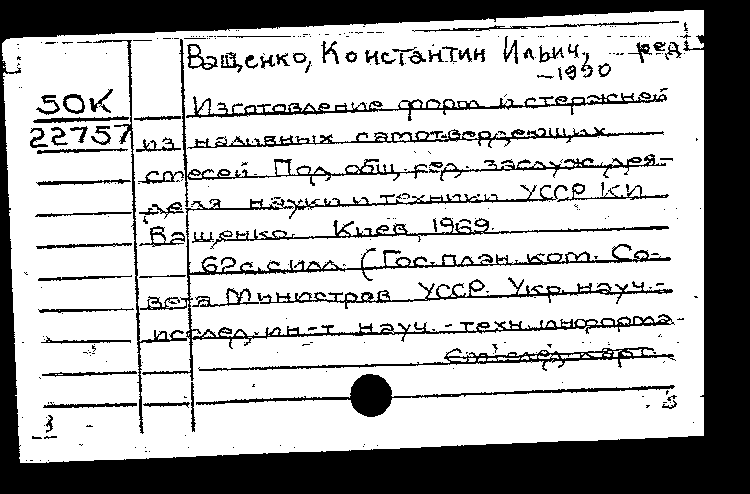 Ващенко, Константин Ильич, ред.
-1990
50К
22757
Изготовление форм и стержней
из наливных самотвердеющих
смесей. Под общ. ред. заслуж. дея-
деля науки и техники УССР К.И.
Ващенко. Киев, 1969.
62с. с илл. (Гос. план. ком. Со-
вета Министров УССР. Укр. науч.-
исслед. ин-т науч.-техн. информа-
См. след. карт.
З